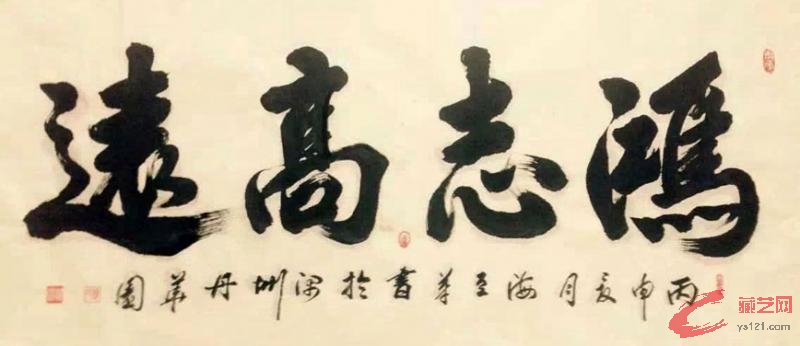 鴻志高遠
丙申夏月海書於深圳丹華園
藏艺网
ys121.com